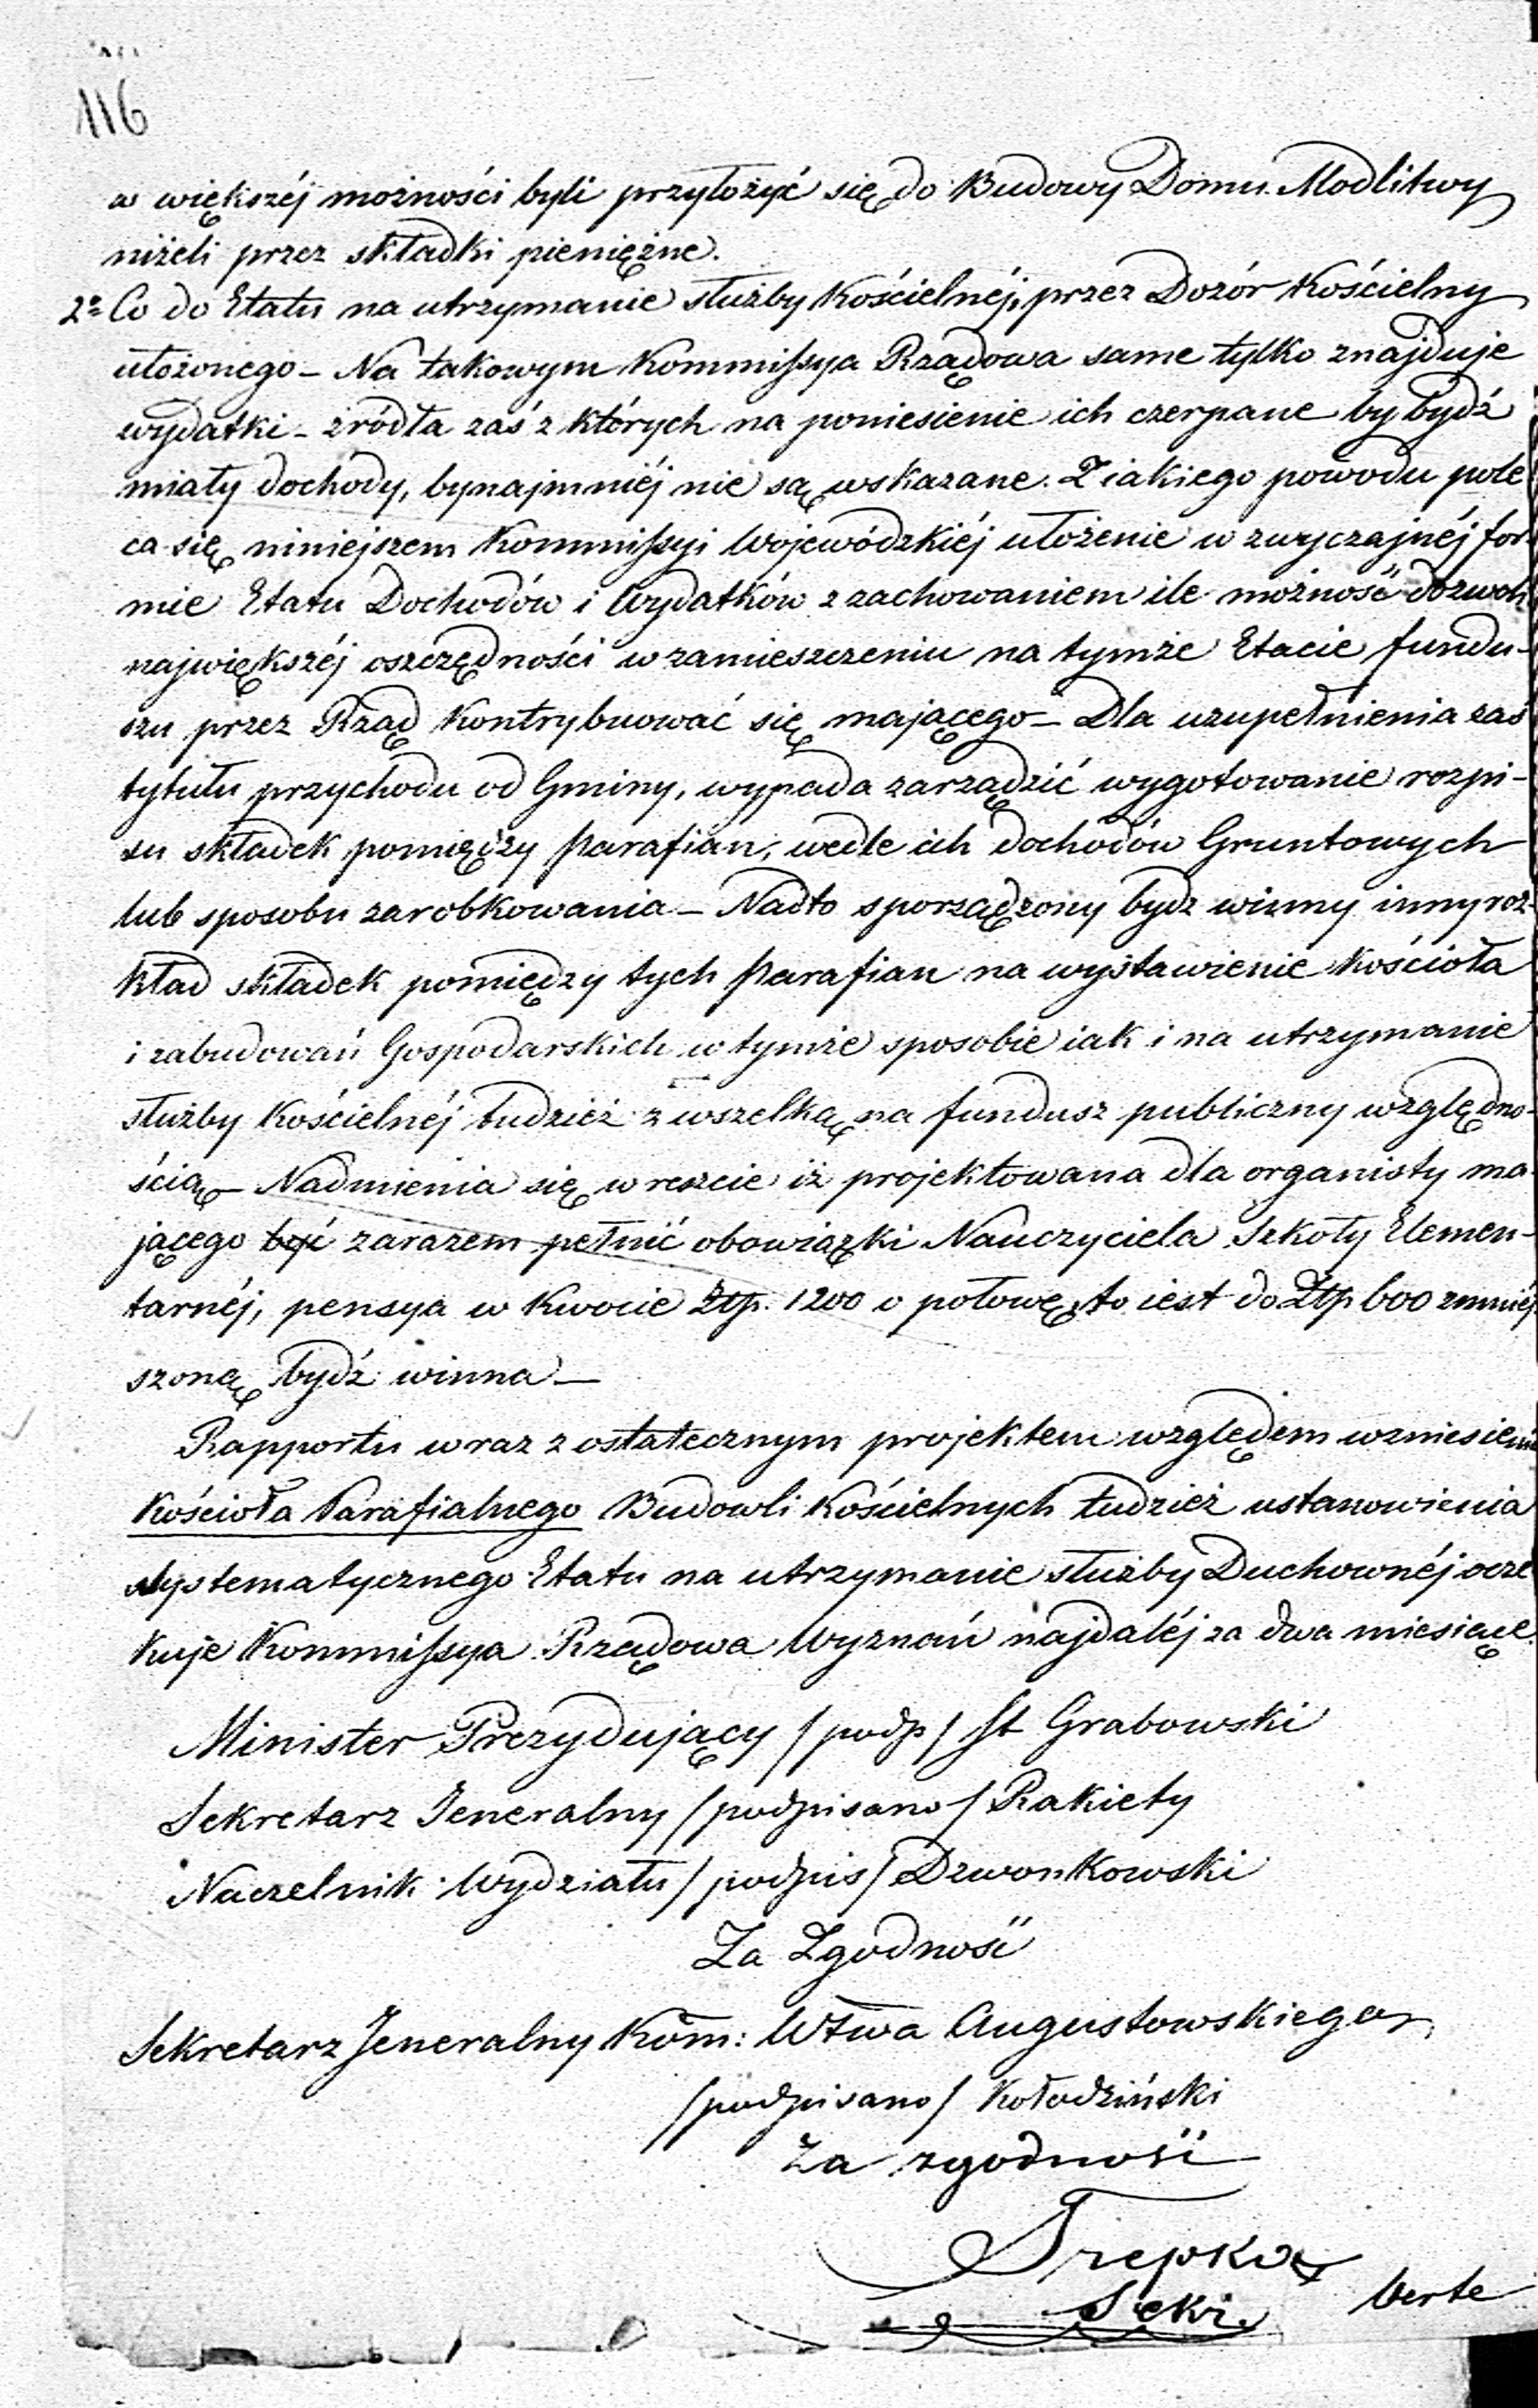 116
w większéj możności byli przyłożyć się do Budowy Domu Modlitwy
niżeli przez składki pieniężne.
2º Co do Etatu na utrzymanie służby Kościelnéj, przez Dozór Kościelny
ułożonego – Na takowym Kommissya Rządowa same tylko znajduje
wydatki – źródła zaś z których na poniesienie ich czerpane by bydź
miały dochody, bynajmniéj nie są wskazane. Z iakiego powodu pole
ca się niniejszem Kommissyi Wojewódzkiéj ułożenie w zwyczajnéj for-
mie Etatu Dochodów i Wydatków z zachowaniem ile możność dozwoli
największéj oszczędności w zamieszczeniu na tymże Etacie fundu-
szu przez Rząd Kontrybuować się mającego – Dla uzupełnienia zaś
tytułu przychodu od Gminy, wypada zarządzić wygotowanie rozpi-
su składek pomiędzy Parafian, wedle ich dochodów Gruntowych
lub sposobu zarobkowania – Nadto sporządzony bydz winny inny roz-
kład składek pomiędzy tych Parafian na wystawienie Kościoła
i zabudowań Gospodarskich w tymże sposobie iak i na utrzymanie
służby Kościelnéj tudzież z wszelką na fundusz publiczny względno-
ścią – Nadmienia się w reszcie iż projektowana dla organisty ma-
jącego być zarazem pełnić obowiązki Nauczyciela Szkoły Elemen-
tarnéj, pensya w Kwocie Złp. 1200 o połowę, to iest do Złp 600 zmniéj
szoną bydź winna –
Rapportu wraz z ostatecznym projektem względem wzniesienia
Kościoła Parafialnego Budowli Kościelnych tudzież ustanowienia
systematycznego Etatu na utrzymanie służby Duchownéj ocze
kuje Kommissya Rządowa Wyznań najdaléj za dwa miesiące.
Minister Prezydujący /podp/ St Grabowski
Sekretarz Jeneralny /podpisano/ Rakiety
Naczelnik Wydziału /podpis/ Dzwonkowski
Za Zgodność
Sekretarz Jeneralny Kom: Wtwa Augustowskiego
/podpisano/ Kołodziński
Za zgodność
Trepka
Sekr.
Verte